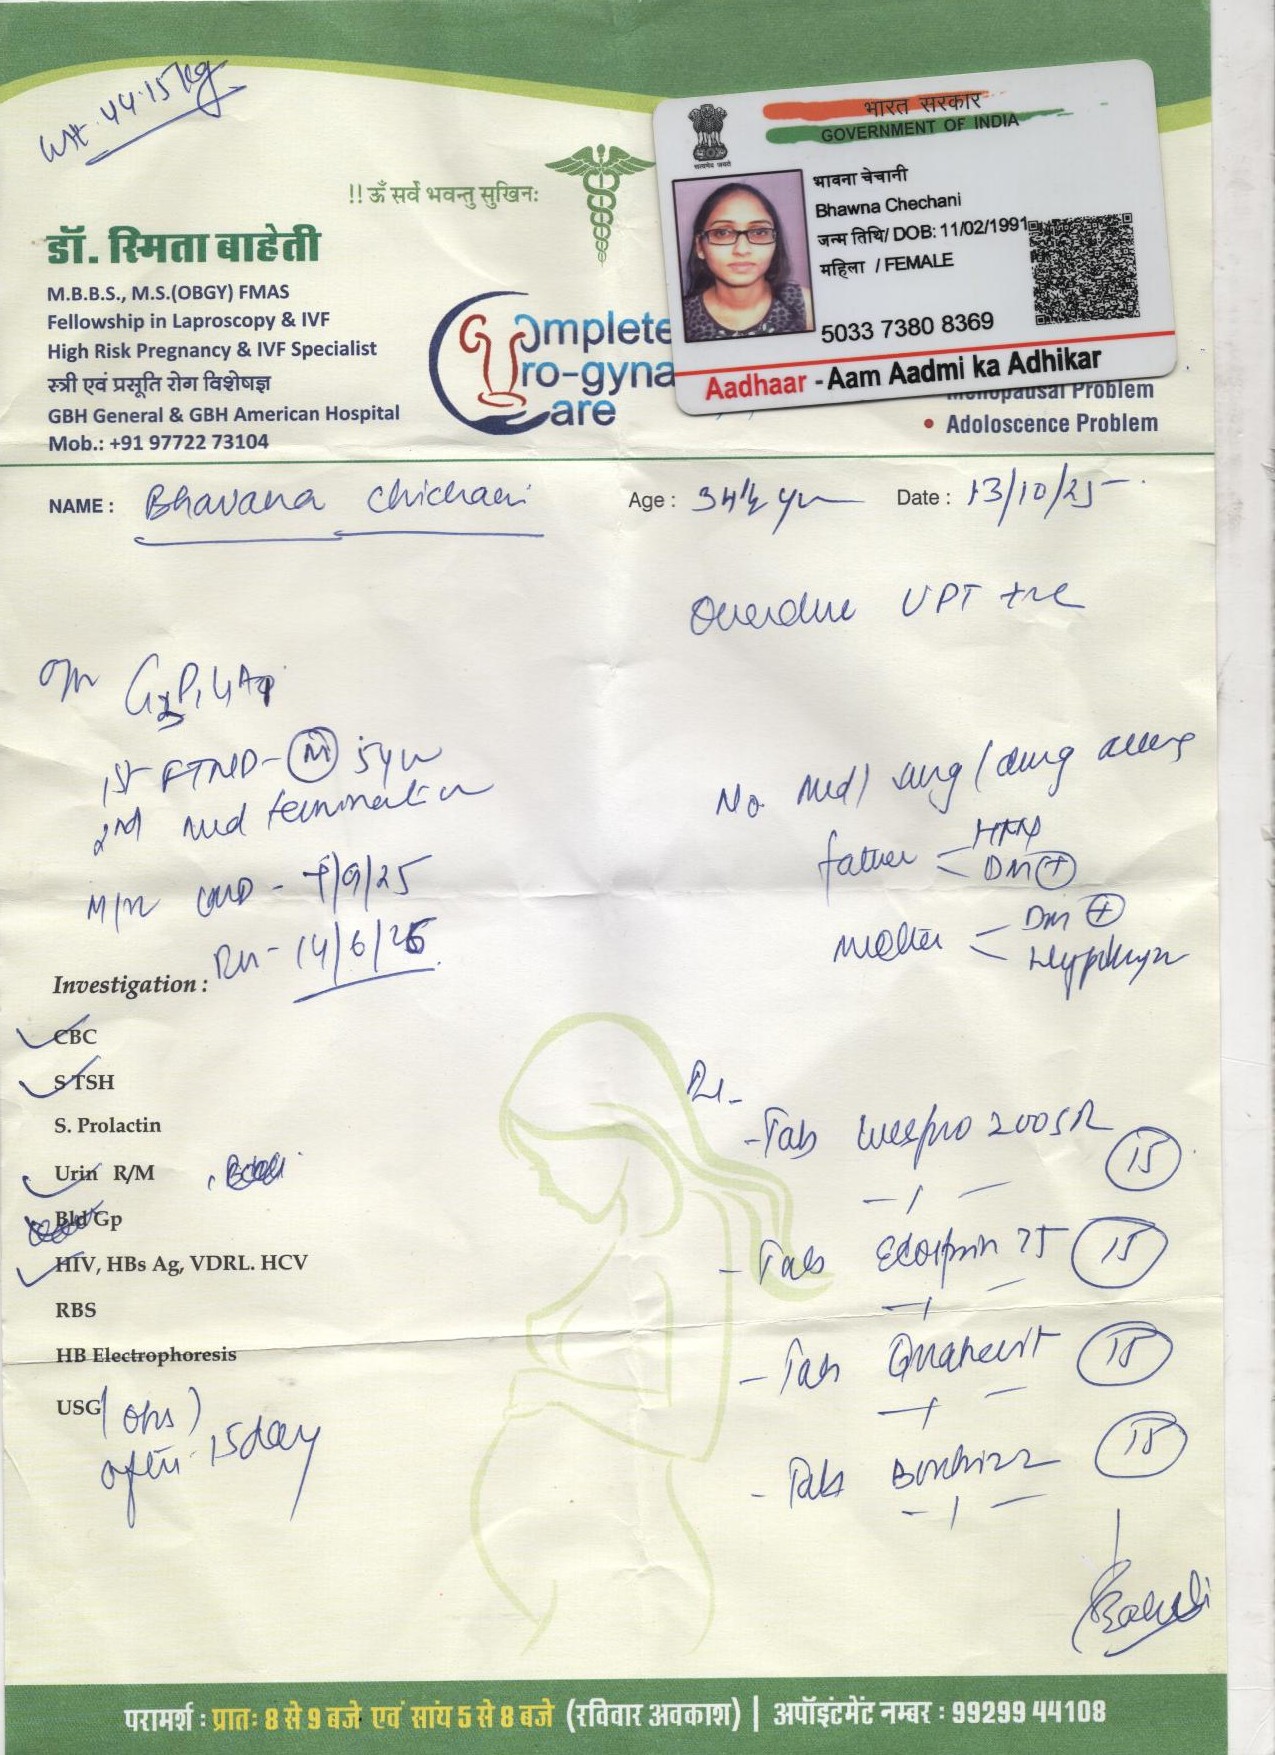 Wt. 44.15 kg
!! ॐ सर्वे भवन्तु सुखिनः
डॉ. स्मिता बाहेती
M.B.B.S., M.S.(OBGY) FMAS
Fellowship in Laproscopy & IVF
High Risk Pregnancy & IVF Specialist
स्त्री एवं प्रसूति रोग विशेषज्ञ
GBH General & GBH American Hospital
Mob.: +91 97722 73104
Complete
Uro-gyna
Care
भारत सरकार
GOVERNMENT OF INDIA
सत्यमेव जयते
भावना चेचानी
Bhawna Chechani
जन्म तिथि/ DOB: 11/02/1991
महिला / FEMALE
5033 7380 8369
Aadhaar - Aam Aadmi ka Adhikar
Menopausal Problem
• Adoloscence Problem
NAME : Bhavana Chichani Age : 34½ yr Date : 13/10/25
Overdue UPT +ve
1st FTND - M 5yr
2nd med termination
No med / surg / drug allerg
father HTN
DM +
M/H LMP - 7/9/25
mother Dm +
14/6/26
Investigation :
CBC
S TSH
S. Prolactin
Urin R/M
Bld Gp
HIV, HBs Ag, VDRL. HCV
RBS
HB Electrophoresis
USG (obs)
after 15 day
Tab 200 SR 15
- 1 -
- Tab Ecosprin 75 15
- 1 -
- Tab 15
- 1 -
- Tab 15
- 1 -
परामर्श : प्रातः 8 से 9 बजे एवं सांय 5 से 8 बजे (रविवार अवकाश) | अपॉइंटमेंट नम्बर : 99299 44108